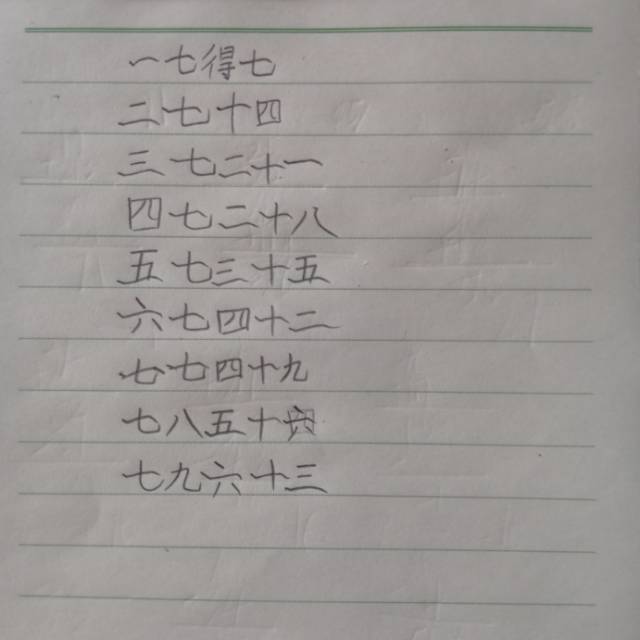 一七得七
二七十四
三七二十一
四七二十八
五七三十五
六七四十二
七七四十九
七八五十六
七九六十三